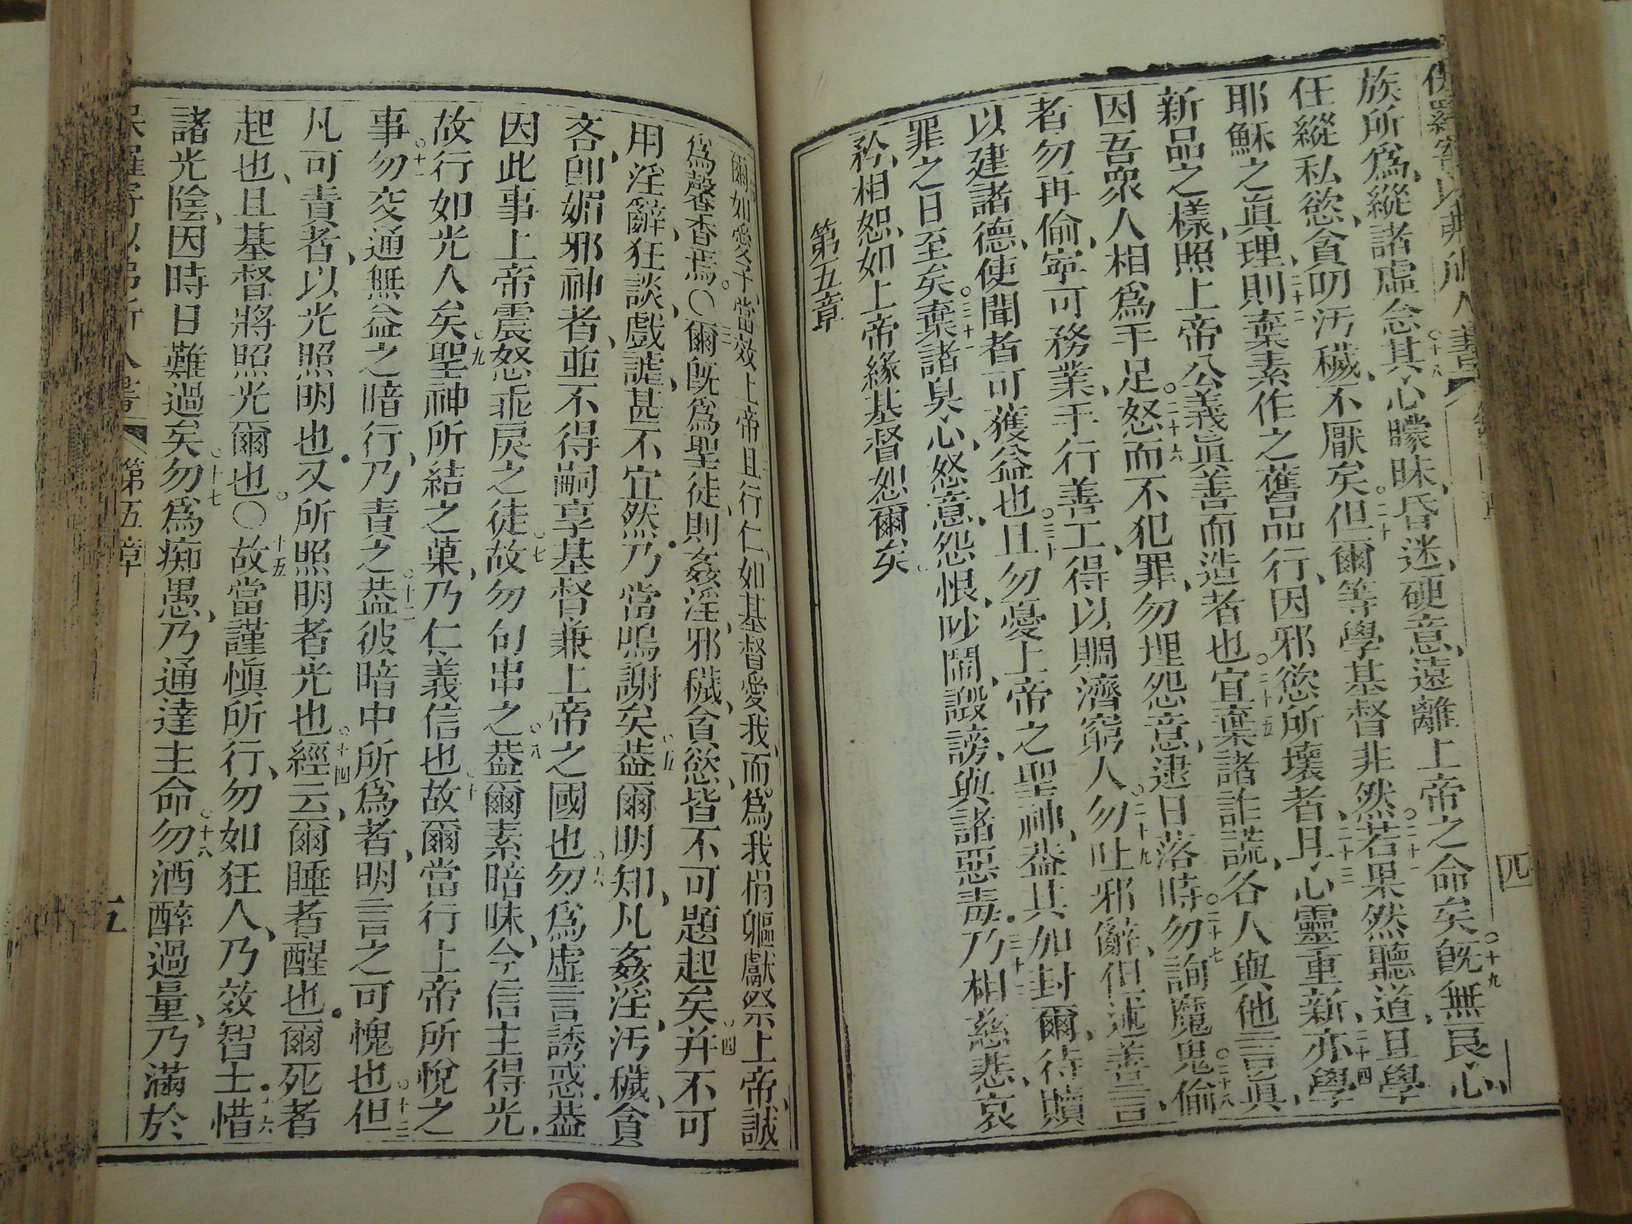 族所爲縱諸虛念其心矇昧昏迷硬意遠離上帝之命矣旣無良心
任縱私慾貪叨汚穢不厭矣但爾等學基督非然若果然聽道且學
耶穌之眞理則棄素作之舊品行因邪慾所壞者且心靈重新亦學
新品之樣照上帝公義眞善而造者也宜棄諸詐謊各人與他言眞
因吾衆人相爲手足怒而不犯罪勿埋怨意逮日落時勿詢魔鬼偷
者勿再偷寧可務業手行善工得以賙濟窮人勿吐邪辭但述善言
以建諸德使聞者可獲益也且勿憂上帝之聖神蓋其加封爾待贖
罪之日至矣棄諸臭心怒意怨恨吵鬧譭謗與諸惡毒乃相慈悲哀
矜相恕如上帝緣基督恕爾矣
第五章
爾如愛子當效上帝且行仁如基督愛我而爲我捐軀獻祭上帝誠
爲馨香焉〇爾旣爲聖徒則姦淫邪穢貪慾皆不可題起矣幷不可
用淫辭狂談戲謔甚不宜然乃當鳴謝矣蓋爾明知凡姦淫汚穢貪
吝卽媚邪神者並不得嗣享基督兼上帝之國也勿爲虛言誘惑蓋
因此事上帝震怒乖戾之徒故勿句串之蓋爾素暗昧今信主得光
故行如光人矣聖神所結之菓乃仁義信也故爾當行上帝所悅之
事勿交通無益之暗行乃責之蓋彼暗中所爲者明言之可愧也但
凡可責者以光照明也又所照明者光也經云爾睡者醒也爾死者
起也且基督將照光爾也〇故當謹愼所行勿如狂人乃效智士惜
諸光陰因時日難過矣勿爲痴愚乃通達主命勿酒醉過量乃滿於
第五章
五
四